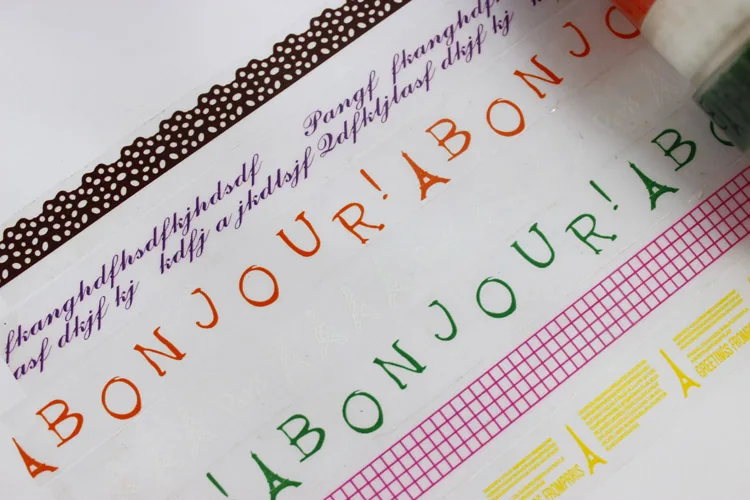 Pangf fkanghdf
fkanghdfhsdfkjhdsdf
asf dkjf kj kdfj a jkdlsjf 2dfkljlasf dkjf kj
BONJOUR! BONJO
! BONJOUR! B
GREETINGS FROMPARIS
FROMPARIS